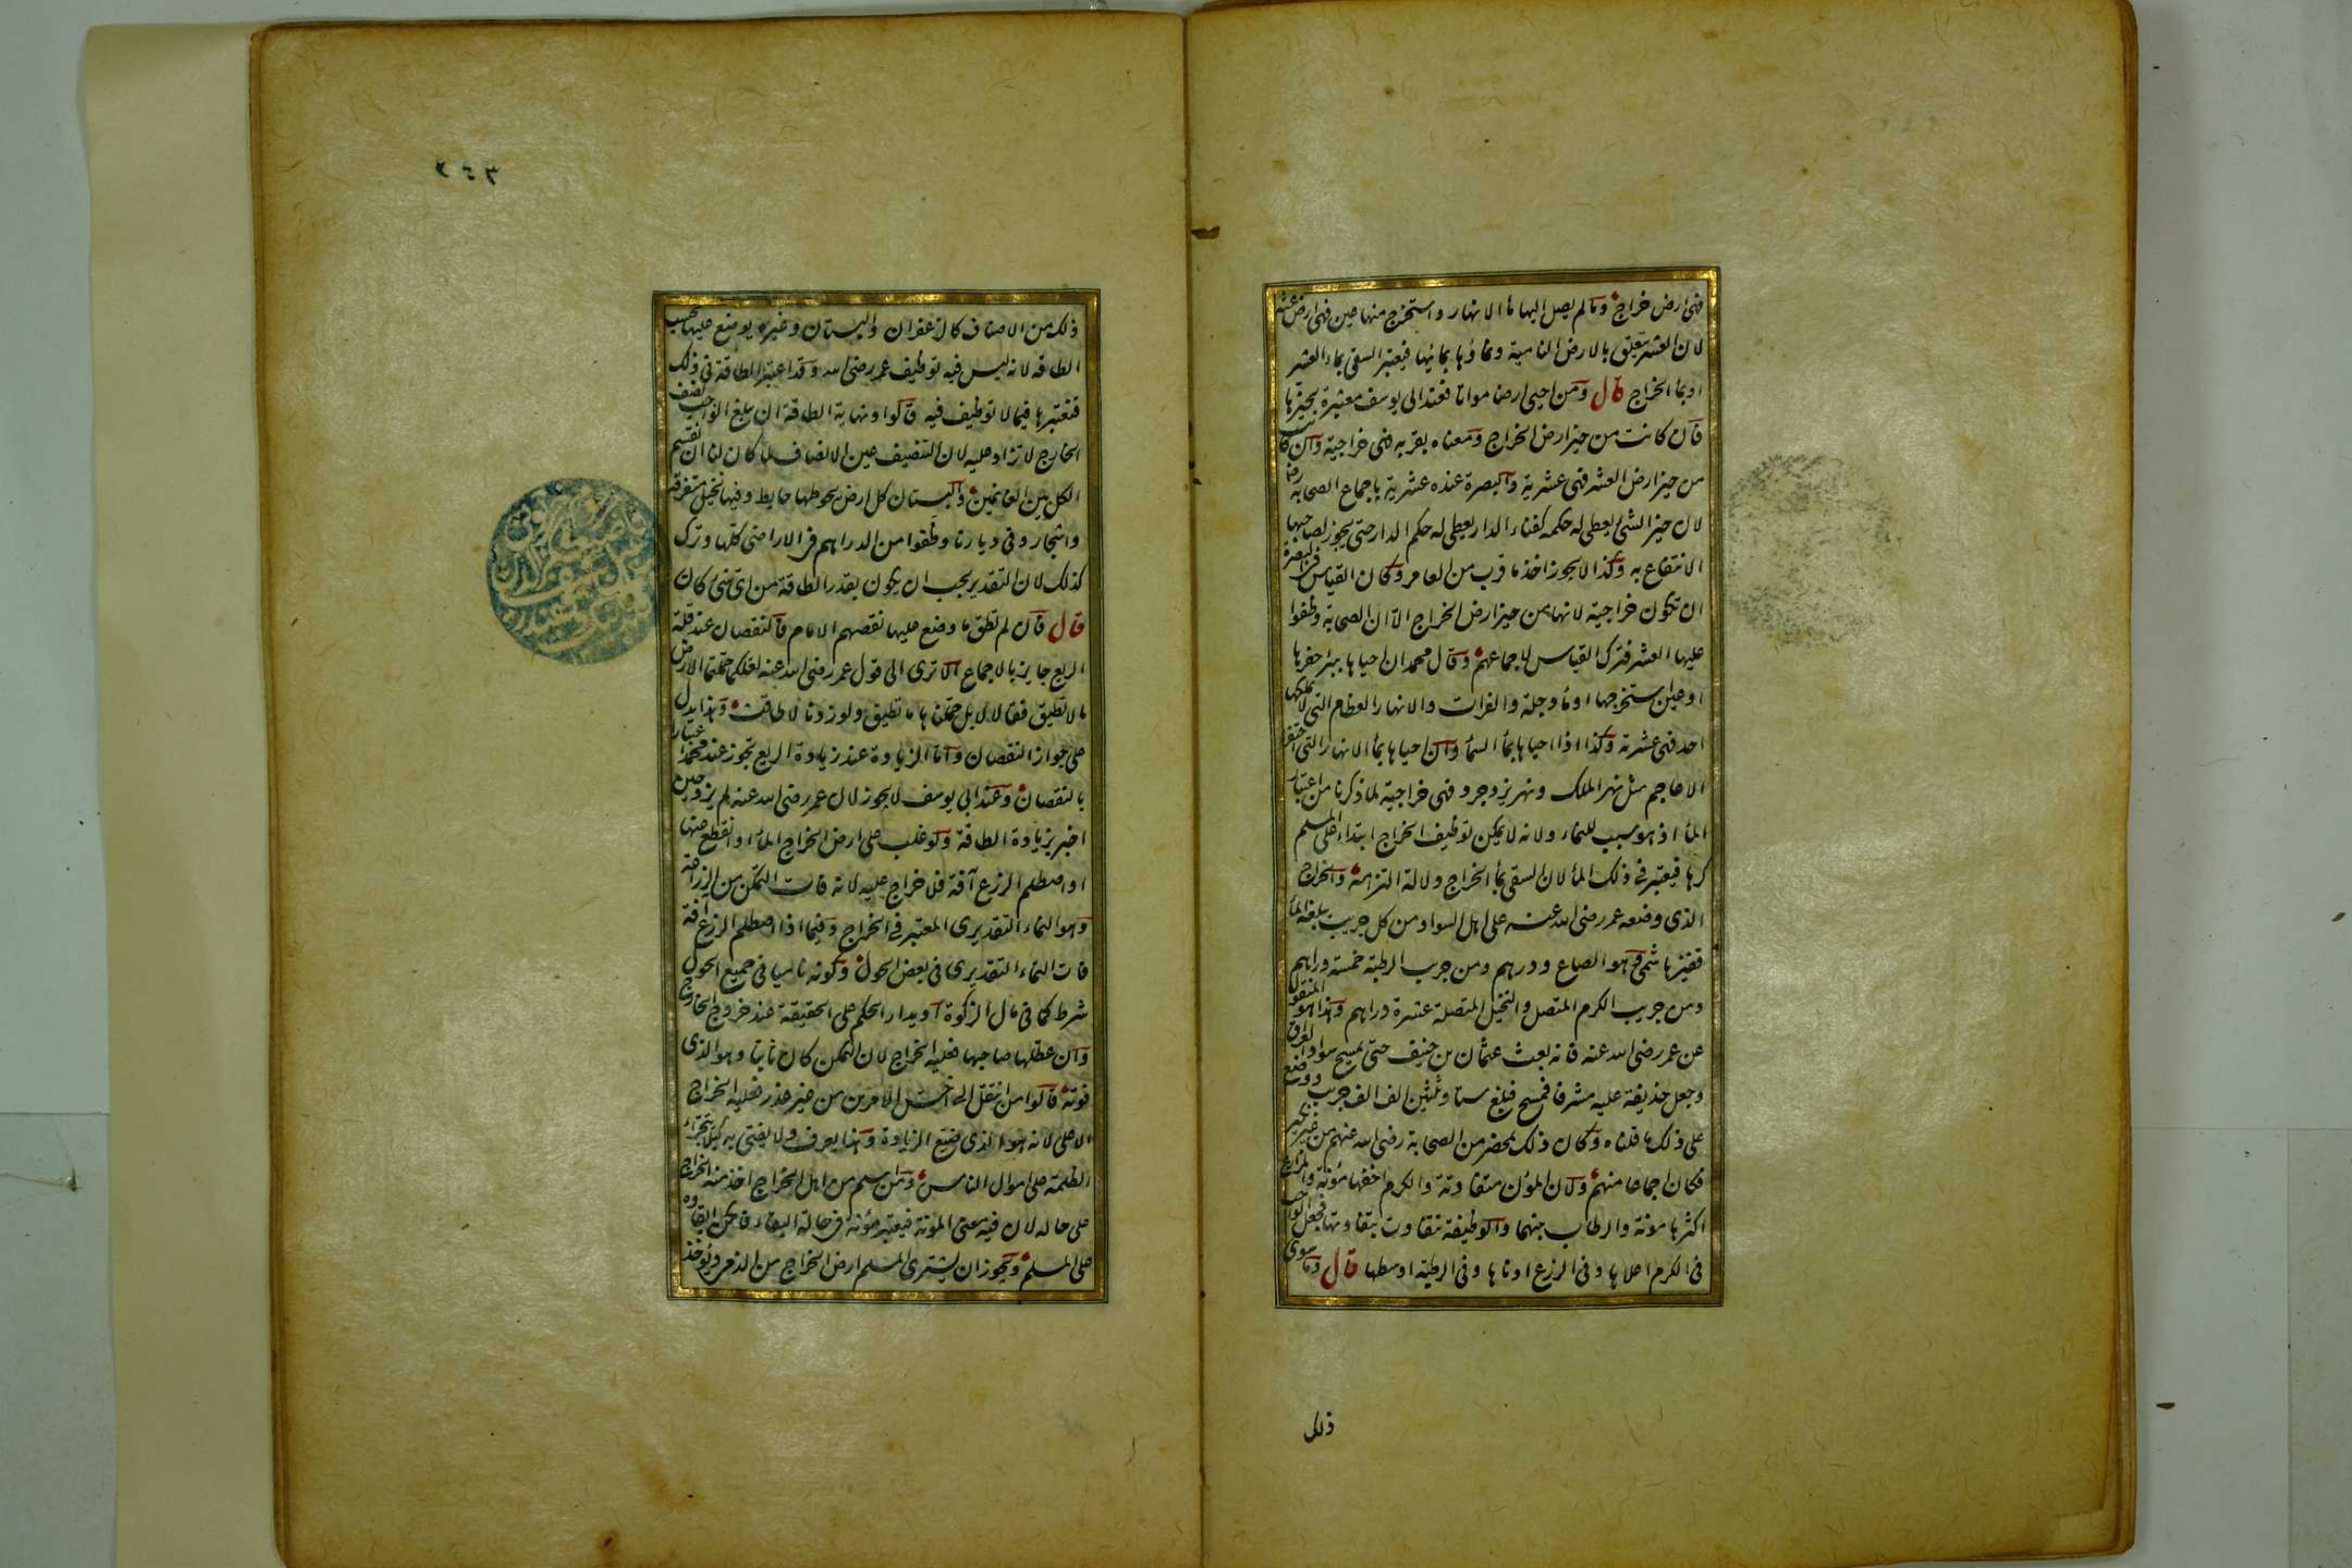 فهي ارض خراج وما لم يصل اليها ماء الانهار واستخرج منها عين فهي ارض عشر
لان العشر يتعلق بالارض النامية ونماؤها بمائها فيعتبر السقي بماء العشر
او بماء الخراج قال ومن احيى ارضا مواتا فعند ابى يوسف معتبرة بحيزها
فان كانت من حيز ارض الخراج ومعناه بقربه فهي خراجية وان كانت
من حيز ارض العشر فهي عشرية والبصرة عنده عشرية باجماع الصحابة رض
لان حيز الشئ يعطى له حكمه كفناء الدار يعطى له حكم الدار حتى يجوز لصاحبها
الانتفاع به وكذا لا يجوز اخذ ما قرب من العامر وكان القياس في البصرة
ان تكون خراجية لانها من حيز ارض الخراج الا ان الصحابة وظفوا
عليها العشر فترك القياس لاجماعهم وقال محمد ان احياها ببئر حفرها
او عين استخرجها او ماء دجلة والفرات والانهار العظام التي لا يملكها
احد فهي عشرية وكذا اذا احياها بماء السماء وان احياها بماء الانهار التي احتفرها
الاعاجم مثل نهر الملك ونهر يزدجرد فهي خراجية لما ذكرنا من اعتبار
الماء اذ هو سبب للنماء ولانه لا يمكن توظيف الخراج ابتداء على المسلم
كرها فيعتبر في ذلك الماء لان السقي بماء الخراج دلالة التزامه والخراج
الذي وضعه عمر رضى الله عنه على اهل السواد من كل جريب يبلغه الماء
قفيز هاشمي وهو الصاع ودرهم ومن جريب الرطبة خمسة دراهم
ومن جريب الكرم المتصل والنخيل المتصلة عشرة دراهم وهذا هو المنقول
عن عمر رضى الله عنه فانه بعث عثمان بن حنيف حتى يمسح سواد العراق
وجعل حذيفة عليه مشرفا فمسح فبلغ ستا وثلثين الف الف جريب ووضع
على ذلك ما قلناه وكان ذلك بمحضر من الصحابة رضى الله عنهم من غير نكير
فكان اجماعا منهم ولان المؤن متفاوتة والكرم اخفها مؤنة والمزارع
اكثرها مونة والرطاب بينهما والوظيفة تتفاوت بتفاوتها فجعل الواجب
في الكرم اعلاها وفى الزرع ادناها وفى الرطبة اوسطها قال وما سوى
ذلك
٢٤٣
ذلك من الاصناف كالزعفران والبستان وغيره يوضع عليها بحسب
الطاقه لانه ليس فيه توظيف عمر رضى الله وقد اعتبر الطاقة في ذلك
فنعتبرها فيما لا توظيف فيه قالوا ونهاية الطاقة ان يبلغ الواجب نصف
الخارج لا تزاد عليه لان التنصيف عين الانصاف لما كان لنا ان نقسم
الكل بين الغانمين والبستان كل ارض يحوطها حايط وفيها نخيل متفرقة
واشجار وفي ديارنا وظفوا من الدراهم في الاراضى كلها وترك
كذلك لان التقدير يجب ان يكون بقدر الطاقة من اى شئ كان
قال فان لم تطق ما وضع عليها نقصهم الامام فالنقصان عند قلة
الريع جايز بالاجماع الا ترى الى قول عمر رضى الله عنه لعلكما حملتما الارض
ما لا تطيق فقالا لا بل حملناها ما تطيق ولو زدنا لاطاقت وهذا يدل
على جواز النقصان واما الزيادة عند زيادة الريع تجوز عند محمد اعتبارا
بالنقصان وعند ابى يوسف لا يجوز لان عمر رضى الله عنه لم يزد حين
اخبر بزيادة الطاقة ولو غلب على ارض الخراج الماء او انقطع عنها
او اصطلم الزرع آفة فلا خراج عليه لانه فات التمكن من الزراعة
وهو النماء التقديري المعتبر في الخراج وفيما اذا اصطلم الزرع آفة
فات النماء التقديري في بعض الحول وكونه ناميا في جميع الحول
شرط كما في مال الزكوة او يدار الحكم على الحقيقة عند خروج الخارج
وان عطلها صاحبها فعليه الخراج لان التمكن كان ثابتا وهو الذي
فوته قالوا من انتقل الى اخس الامرين من غير عذر فعليه الخراج
الاعلى لانه هو الذي ضيع الزيادة وهذا يعرف ولا يفتى به كيلا يتجرأ
الظلمة على اموال الناس ومن اسلم من اهل الخراج اخذ منه الخراج
على حاله لان فيه معنى المؤنة فيعتبر مؤنة في حالة البقاء فامكن ابقاوه
على المسلم ويجوز ان يشترى المسلم ارض الخراج من الذمى ويؤخذ